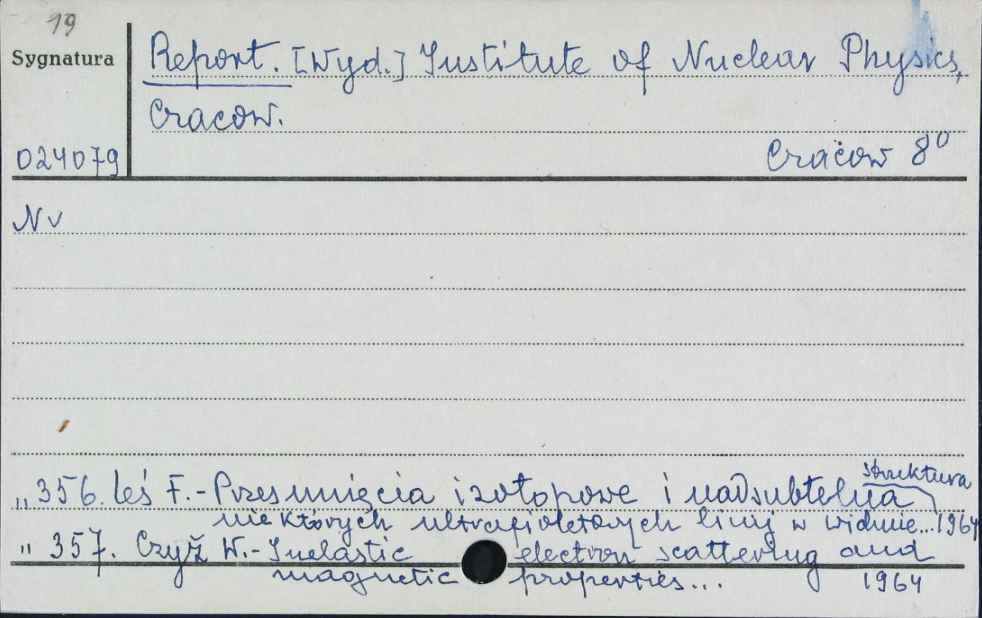 19
Sygnatura
Report. [Wyd.] Institute of Nuclear Physics,
Cracow.
024079
Cracow 8°
Nv
„ 356. Leś F. - Przesunięcia izotopowe i nadsubtelna struktura
niektórych ultrafioletowych linij w widmie... 1964
" 357. Czyż W. - Inelastic electron scattering and
magnetic properties... 1964